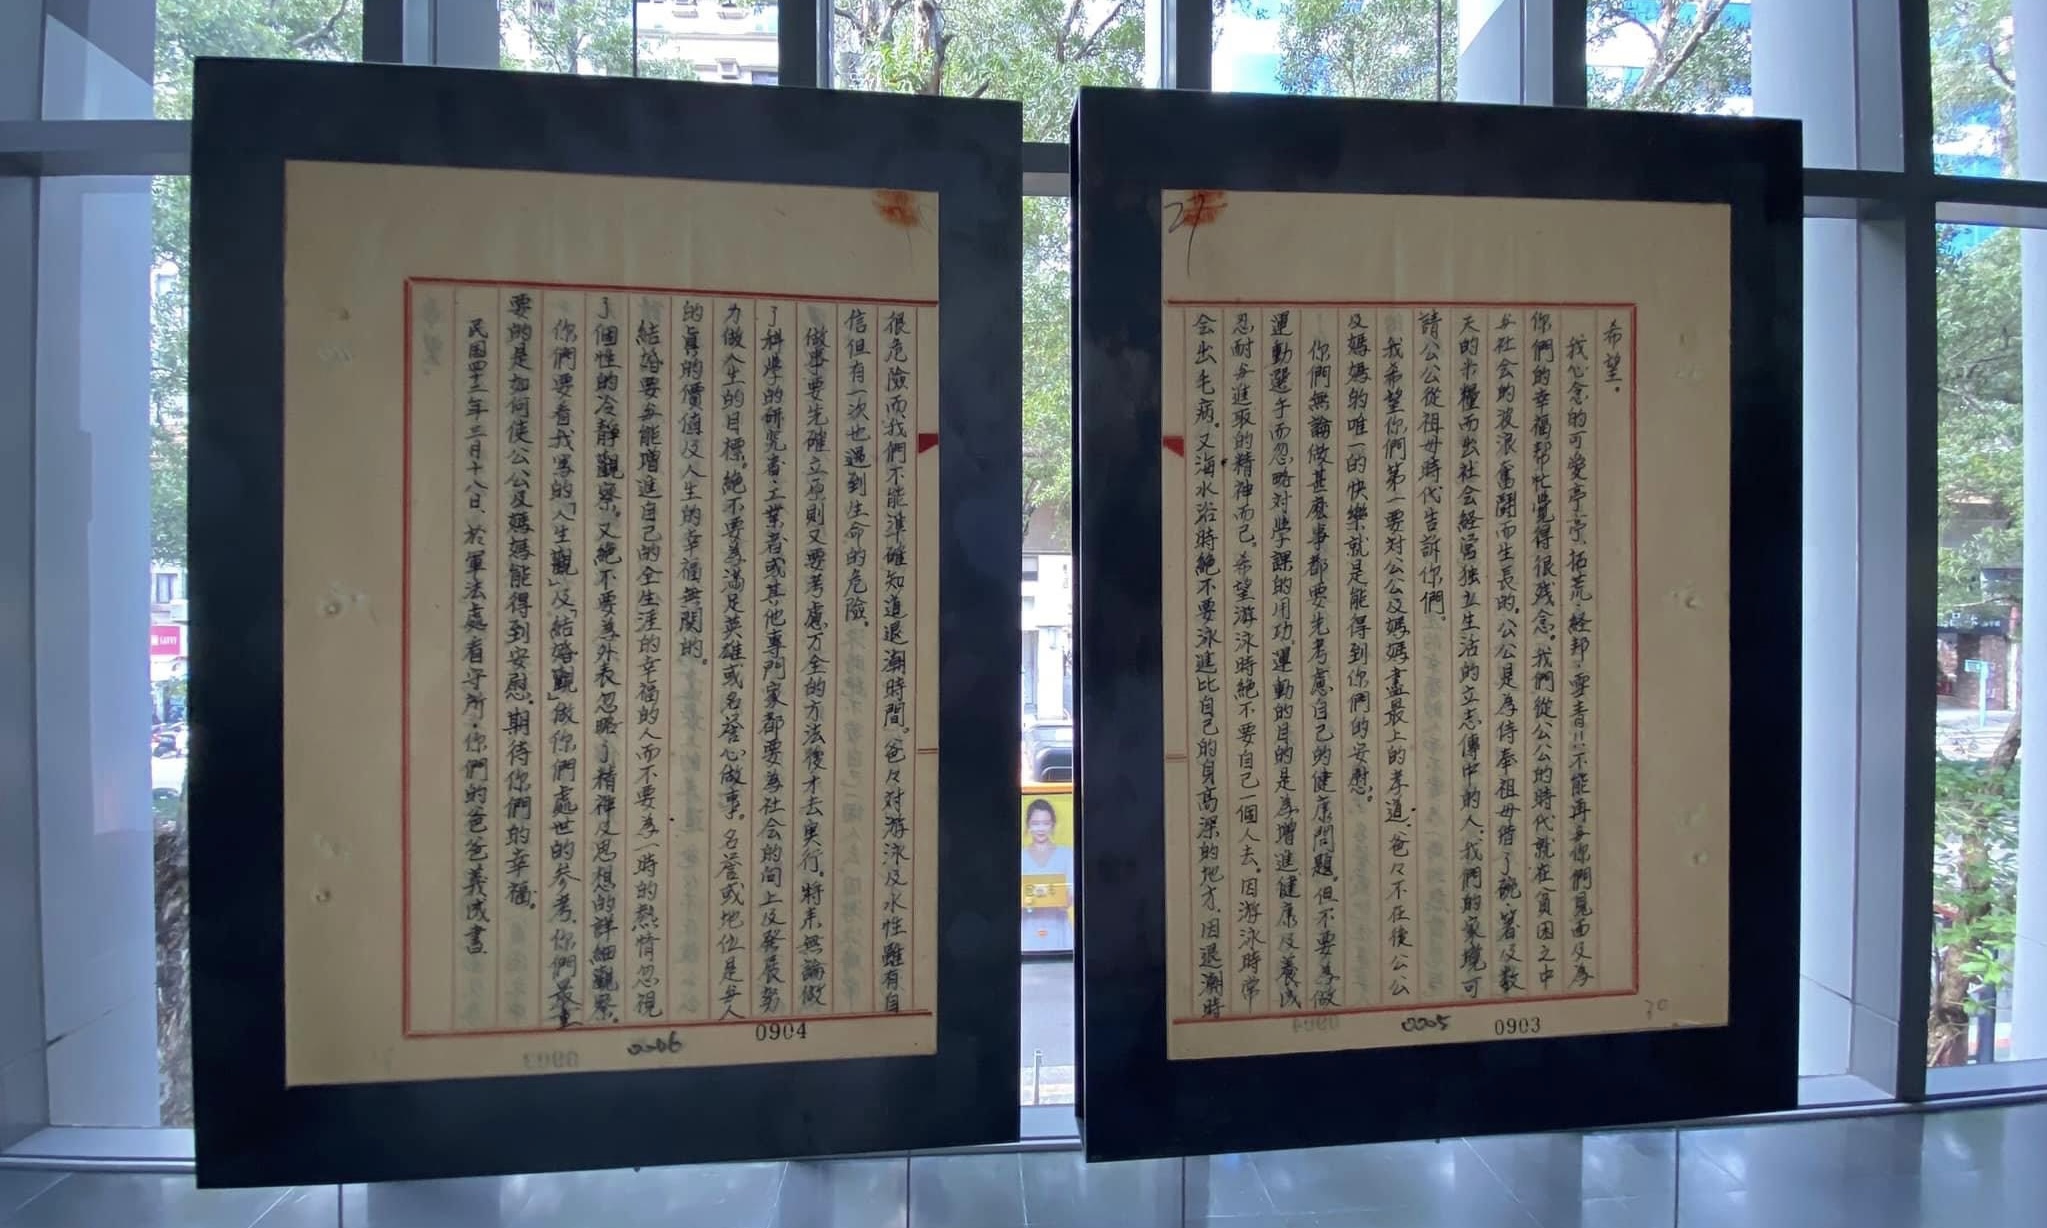 希望。
我心念的可愛亭亭、拓荒、経邦、雪青!!不能再與你們見面及為
你們的幸福幫忙覺得很残念。我們從公公的時代就在貧困之中
与社会的波浪奮鬪而生長的。公公是為侍奉祖母借了碗、箸及数
天的米糧而出社会経営独立生活的立志傳中的人、我們的家境可
請公公從祖母時代告訴你們。
我希望你們第一要对公公及媽媽盡最上的孝道、爸々不在後公公
及媽媽的唯一的快樂就是能得到你們的安慰。
你們無論做甚麼事都要先考慮自己的健康問題。但不要為做
運動選手而忽略对学課的用功、運動的目的是為增進健康及養成
忍耐与進取的精神而已。希望游泳時絶不要自己一個人去。因游泳時常
会出毛病。又海水浴時絶不要泳進比自己的身高深的地方、因退潮時
很危險而我們不能準確知道退潮時間。爸々对游泳及水性雖有自
信但有一次也遇到生命的危險。
做事要先確立原則又要考慮万全的方法後才去实行。將来無論做
了科学的研究者、工業者或其他專門家都要為社会的向上及發展努
力做人生的目標。絶不要為滿足英雄或名誉心做事。名誉或地位是与人
的真的價值及人生的幸福無関的。
結婚要与能增進自己的全生涯的幸福的人而不要為一時的熱情忽視
了個性的冷靜觀察。又絶不要為外表忽略了精神及思想的詳細觀察。
你們要看我写的「人生觀」及「結婚觀」做你們處世的参考、你們最重
要的是如何使公公及媽媽能得到安慰。期待你們的幸福。
民国四十三年三月十八日、於軍法處看守所、你們的爸爸義成書
0205 0903
0206 0904